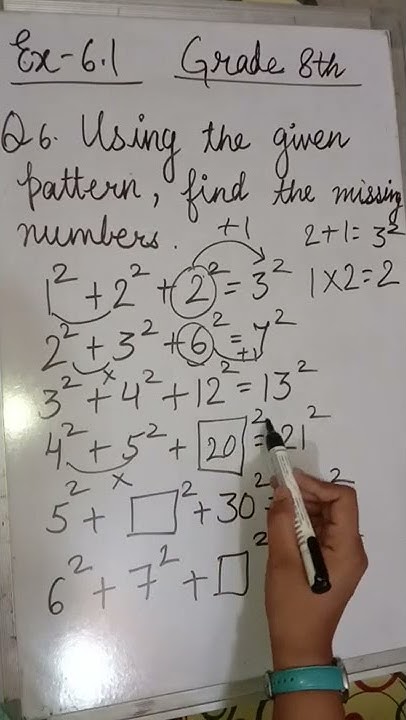 Ex-6.1 Grade 8th
Q6. Using the given
pattern, find the missing
numbers.
+1
2+1=3²
1²+2²+2²=3²
1×2=2
2²+3²+6²=7²
+1
×
3²+4²+12²=13²
4²+5²+20²=21²
×
5²+□²+30²=²
6²+7²+□²